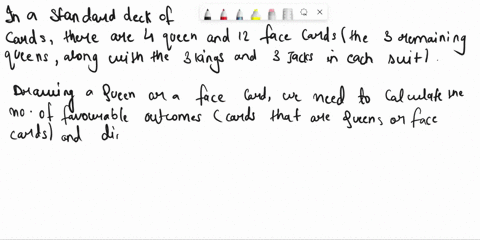 In a standard deck of
cards, there are 4 queen and 12 face cards (the 3 remaining
queens, along with the 3 kings and 3 Jacks in each suit).
Drawing a Queen or a face card, we need to calculate the
no. of favourable outcomes (cards that are Queens or face
cards) and di